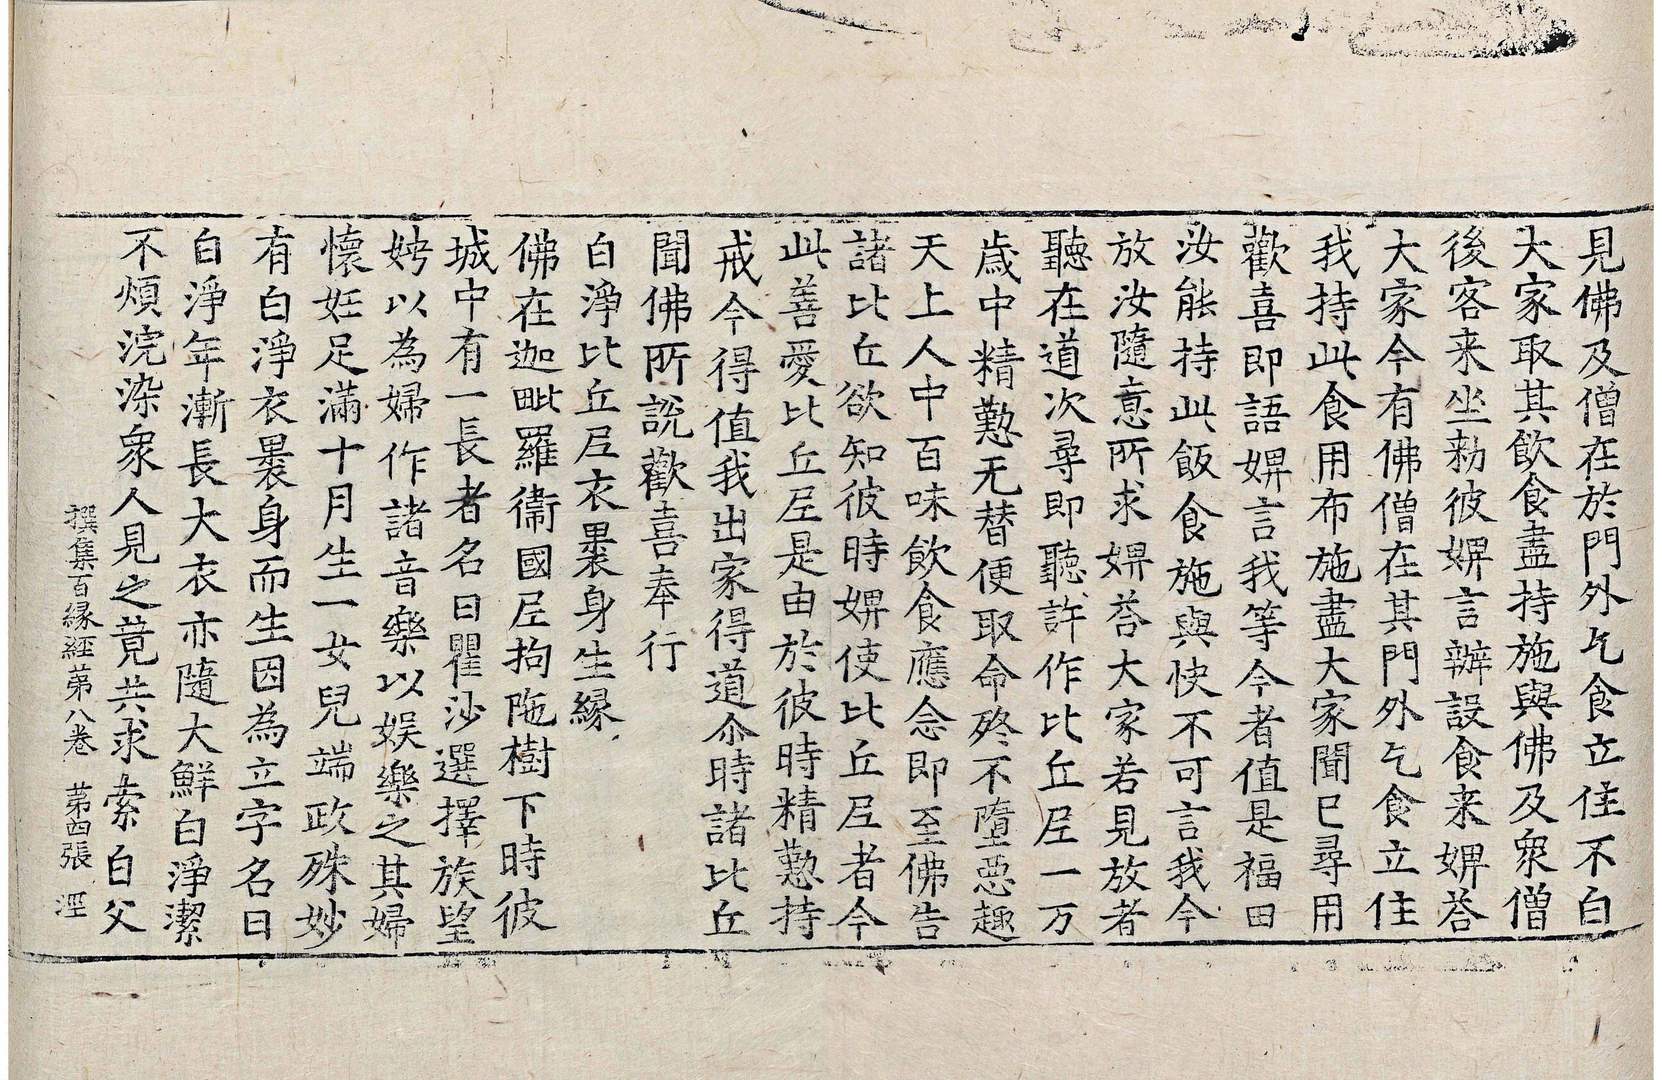 見佛及僧在於門外乞食立住不白
大家取其飲食盡持施與佛及衆僧
後客来坐勑彼婢言辦設食来婢荅
大家今有佛僧在其門外乞食立住
我持此食用布施盡大家聞已尋用
歡喜即語婢言我等今者值是福田
汝能持此飯食施與快不可言我今
放汝隨意所求婢荅大家若見放者
聽在道次尋即聽許作比丘尼一万
歲中精懃无替便取命終不墮惡趣
天上人中百味飲食應念即至佛告
諸比丘欲知彼時婢使比丘尼者今
此善愛比丘尼是由於彼時精懃持
戒今得值我出家得道尒時諸比丘
聞佛所說歡喜奉行
白淨比丘尼衣裹身生緣
佛在迦毗羅衛國尼拘陁樹下時彼
城中有一長者名曰瞿沙選擇族望
娉以為婦作諸音樂以娱樂之其婦
懷妊足滿十月生一女兒端政殊妙
有白淨衣裹身而生因為立字名曰
白淨年漸長大衣亦隨大鮮白淨潔
不煩浣染衆人見之竟共求索白父
撰集百緣經苐八卷 苐四張 涇